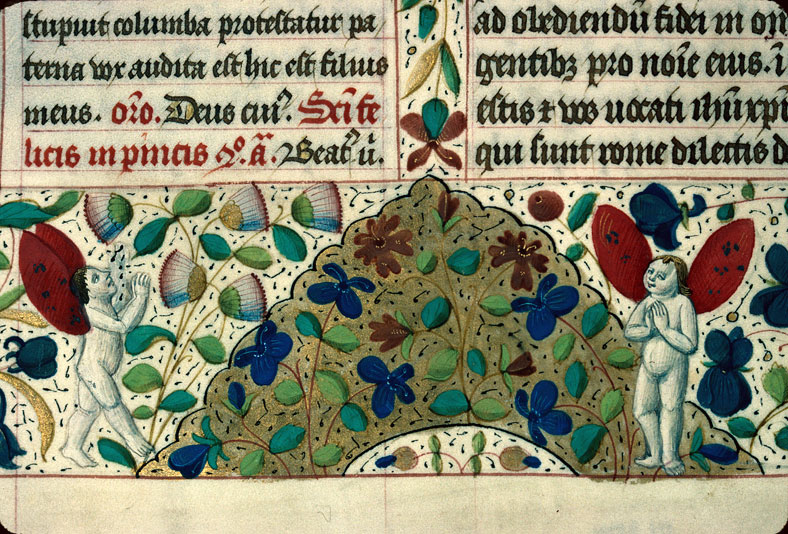 stupuit columba protestatur pa
terna vox audita est hic est filius
meus. oro. Deus cui⁹. Sci fe
licis in pincis ꝯ. a. Beat⁹ u.
ad obediendū fidei in om
gentibꝫ pro noīe eius. ī
estis ⁊ vos uocati ihū xpi
qui sunt rome dilectis d